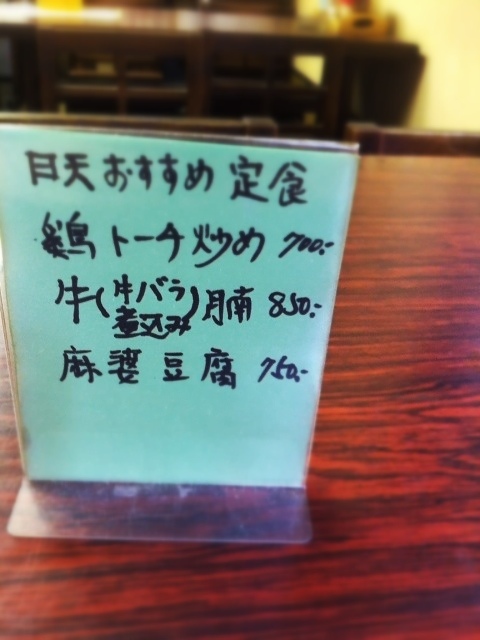 日天おすすめ 定食
鶏トーチ炒め 700.-
牛(牛バラ煮込み)腩 850.-
麻婆豆腐 750.-